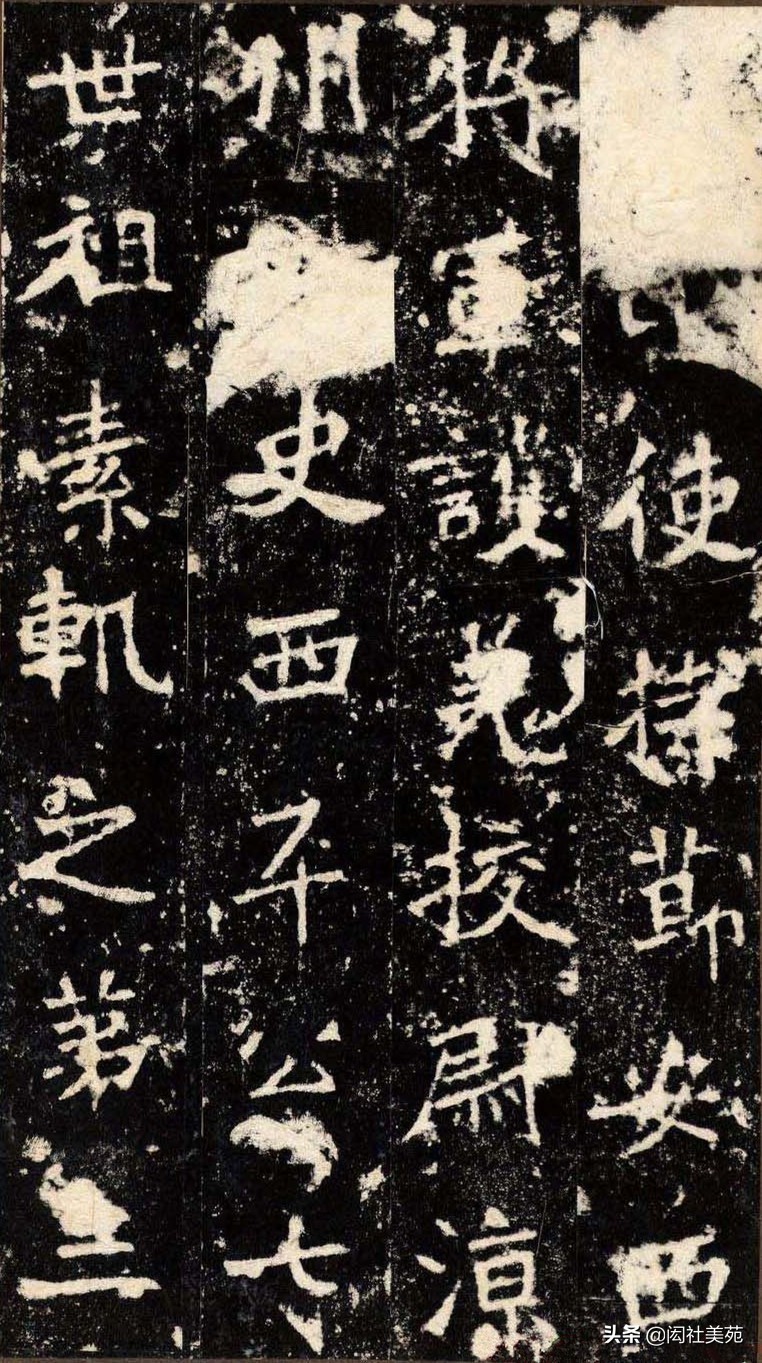 使持莭安西
將軍護羌挍尉涼
州史西平公七
世祖素軌之苐三
头条 @闳社美苑